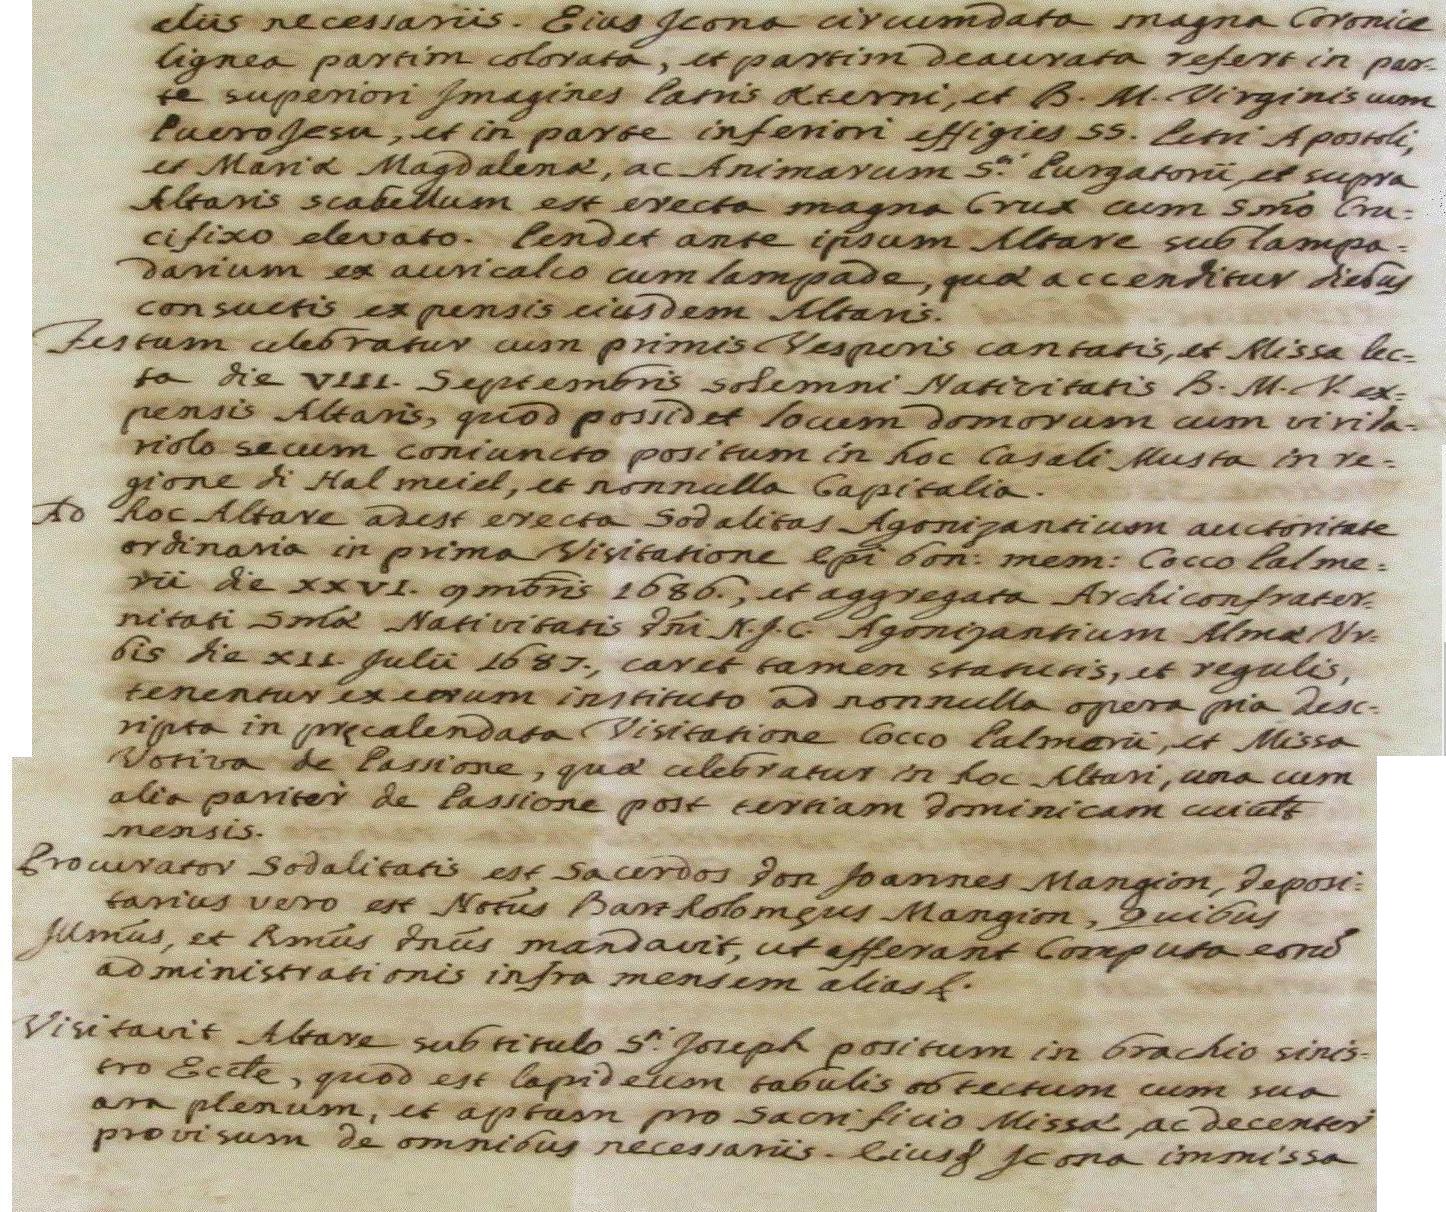 aliis necessariis. Eius Icona circumdata magna Coronice
lignea partim colorata, et partim deaurata refert in par-
te superiori Imagines Patris Æterni, et B. M. Virginis cum
Puero Jesu, et in parte inferiori effigies SS. Petri Apostoli,
et Mariæ Magdalenæ, ac Animarum S.ti Purgatorii, et supra
Altaris scabellum est erecta magna Crux cum Smo Cru-
cifixo elevato. Pendet ante ipsum Altare sub lampa-
darium ex auricalco cum lampade, quæ accenditur diebus
consuetis expensis eiusdem Altaris.
Festum celebratur cum primis Vesperis cantatis, et Missa lec-
ta die VIII. Septembris solemni Nativitatis B. M. V. ex-
pensis Altaris, quod possidet locum domorum cum virida-
riolo secum coniuncto positum in hoc Casali Musta in re-
gione di Hal meiel, et nonnulla Capitalia.
Ad hoc Altare adest erecta Sodalitas Agonizantium auctoritate
ordinaria in prima Visitatione Epi bon: mem: Cocco Palme-
rii die XXVI. 9mbris 1686., et aggregata Archiconfrater-
nitati Smæ Nativitatis Dni N. J. C. Agonizantium Almæ Ur-
bis die XII. Julii 1687., caret tamen statutis, et regulis,
tenentur ex eorum instituto ad nonnulla opera pia desc-
ripta in pręcalendata Visitatione Cocco Palmerii, et Missa
Votiva de Passione, quæ celebratur in hoc Altari, una cum
alia pariter de Passione post tertiam dominicam cuiuslt
mensis.
Procurator Sodalitatis est Sacerdos Don Joannes Mangion, deposi-
tarius vero est Notus Bartholomęus Mangion, Quibus
Illmus, et Rmus Dnus mandavit, ut afferant Computa eorū
administrationis infra mensem alias &.
Visitavit Altare sub titulo S.ti Joseph positum in brachio sinis-
tro Eccle, quod est lapideum tabulis obtectum cum sua
ara plenum, et aptum pro Sacrificio Missæ, ac decenter
provisum de omnibus necessariis. Eiusq Icona immissa